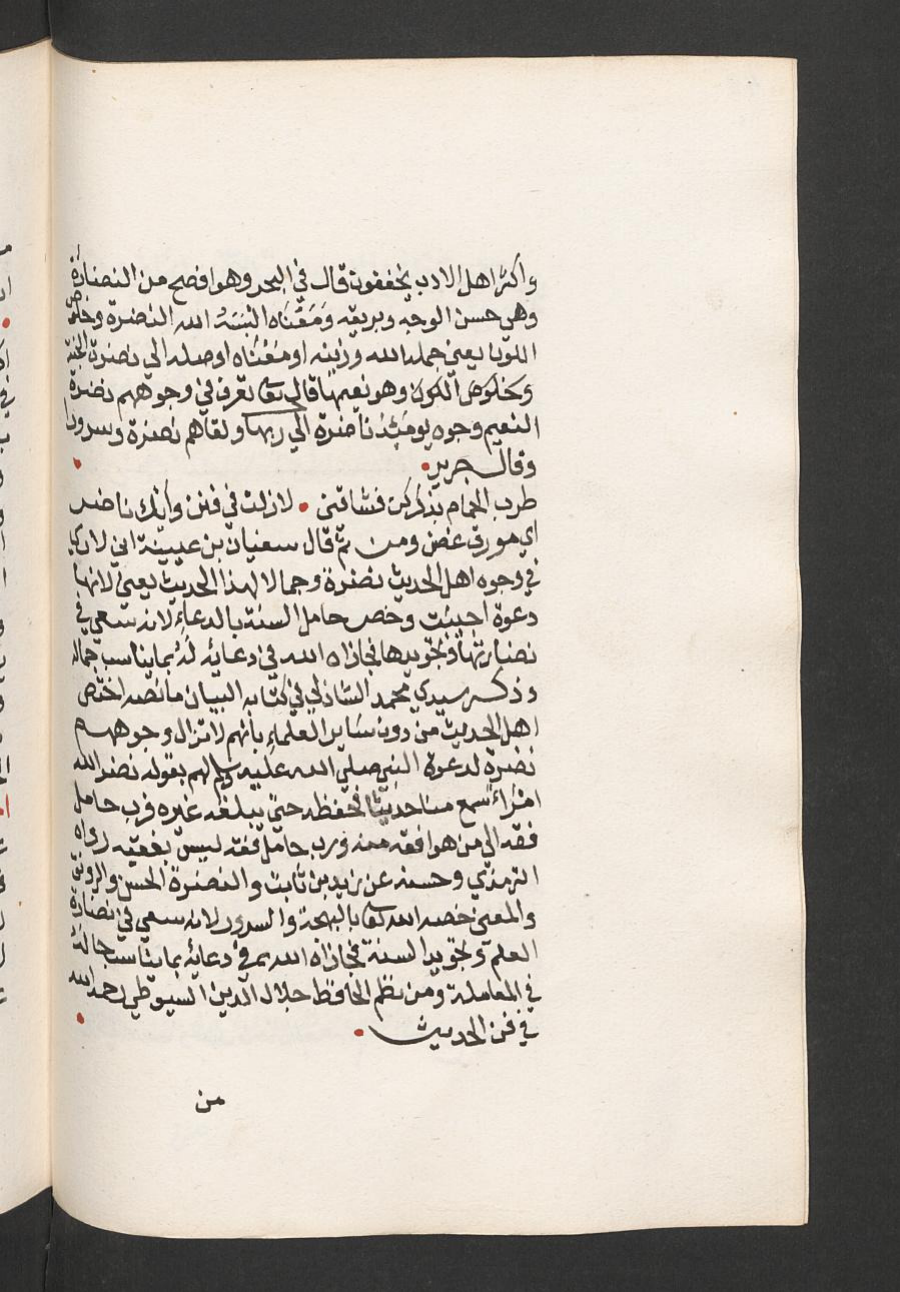 واكثر اهل الادب يخففون قال في البحر وهو افصح من النضارة
وهي حسن الوجه وبريقه ومعناه البسه الله النضرة وخلوص
اللون يعني جمله الله وزينه او معناه اوصله الي نضرة الجنة
وخلوص اللون وهو نعيمها قال تعا تعرف في وجوههم نضرة
النعيم وجوه يومئذ ناضرة الي ربها ولقاهم نضرة وسرورا
وقال جرير
طرب الحمام بذكركن فشاقني • لا زلت في فنن وأيك ناضر
اي مورق غض ومن ثم قال سفيان بن عيينة اني لاري
في وجوه اهل الحديث نضرة وجمالا لهذا الحديث يعني لانها
دعوة اجيبت وخص حامل السنة بالدعاء لانه سعي في
نضارتها وتجويدها فجازاه الله في دعائه له بما يناسب حاله
وذكر سيدي محمد الشاذلي في كتابه البيان ما نصه اختص
اهل الحديث من دون سائر العلماء بانهم لا تزال وجوههم
نضرة لدعوة النبي صلي الله عليه وسلم لهم بقوله نضر الله
امرءا سمع منا حديثا فحفظه حتي يبلغه غيره فرب حامل
فقه الي من هو افقه منه ورب حامل فقه ليس بفقيه رواه
الترمذي وحسنه عن زيد بن ثابت والنضرة الحسن والرونق
والمعني خصه الله تعا بالبهجة والسرور لانه سعي في نضارة
العلم وتجويد السنة فجازاه الله في دعائه بما يناسب حاله
في المعاملة ومن نظم الحافظ جلال الدين السيوطي رحمه الله
في فن الحديث •
من